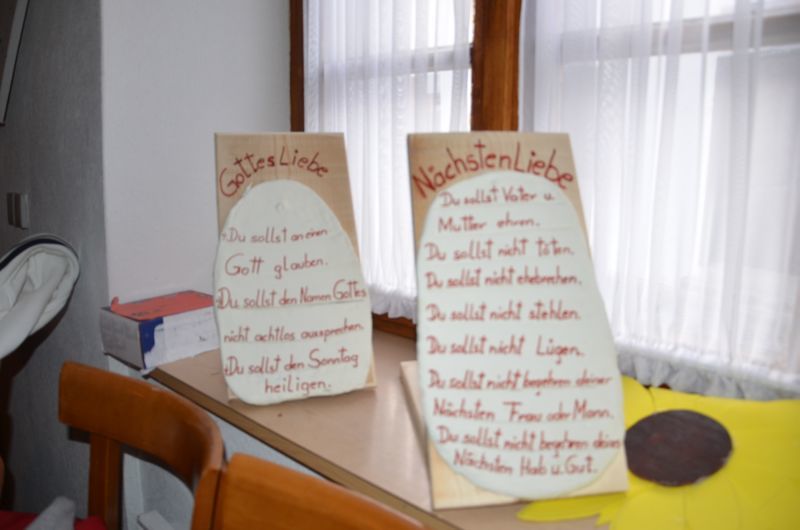 GottesLiebe
Du sollst an einen
Gott glauben.
Du sollst den Namen Gottes
nicht achtlos aussprechen.
Du sollst den Sonntag
heiligen.
NächstenLiebe
Du sollst Vater u.
Mutter ehren.
Du sollst nicht töten.
Du sollst nicht ehebrechen.
Du sollst nicht stehlen.
Du sollst nicht Lügen.
Du sollst nicht begehren deiner
Nächsten Frau oder Mann.
Du sollst nicht begehren deines
Nächsten Hab u. Gut.